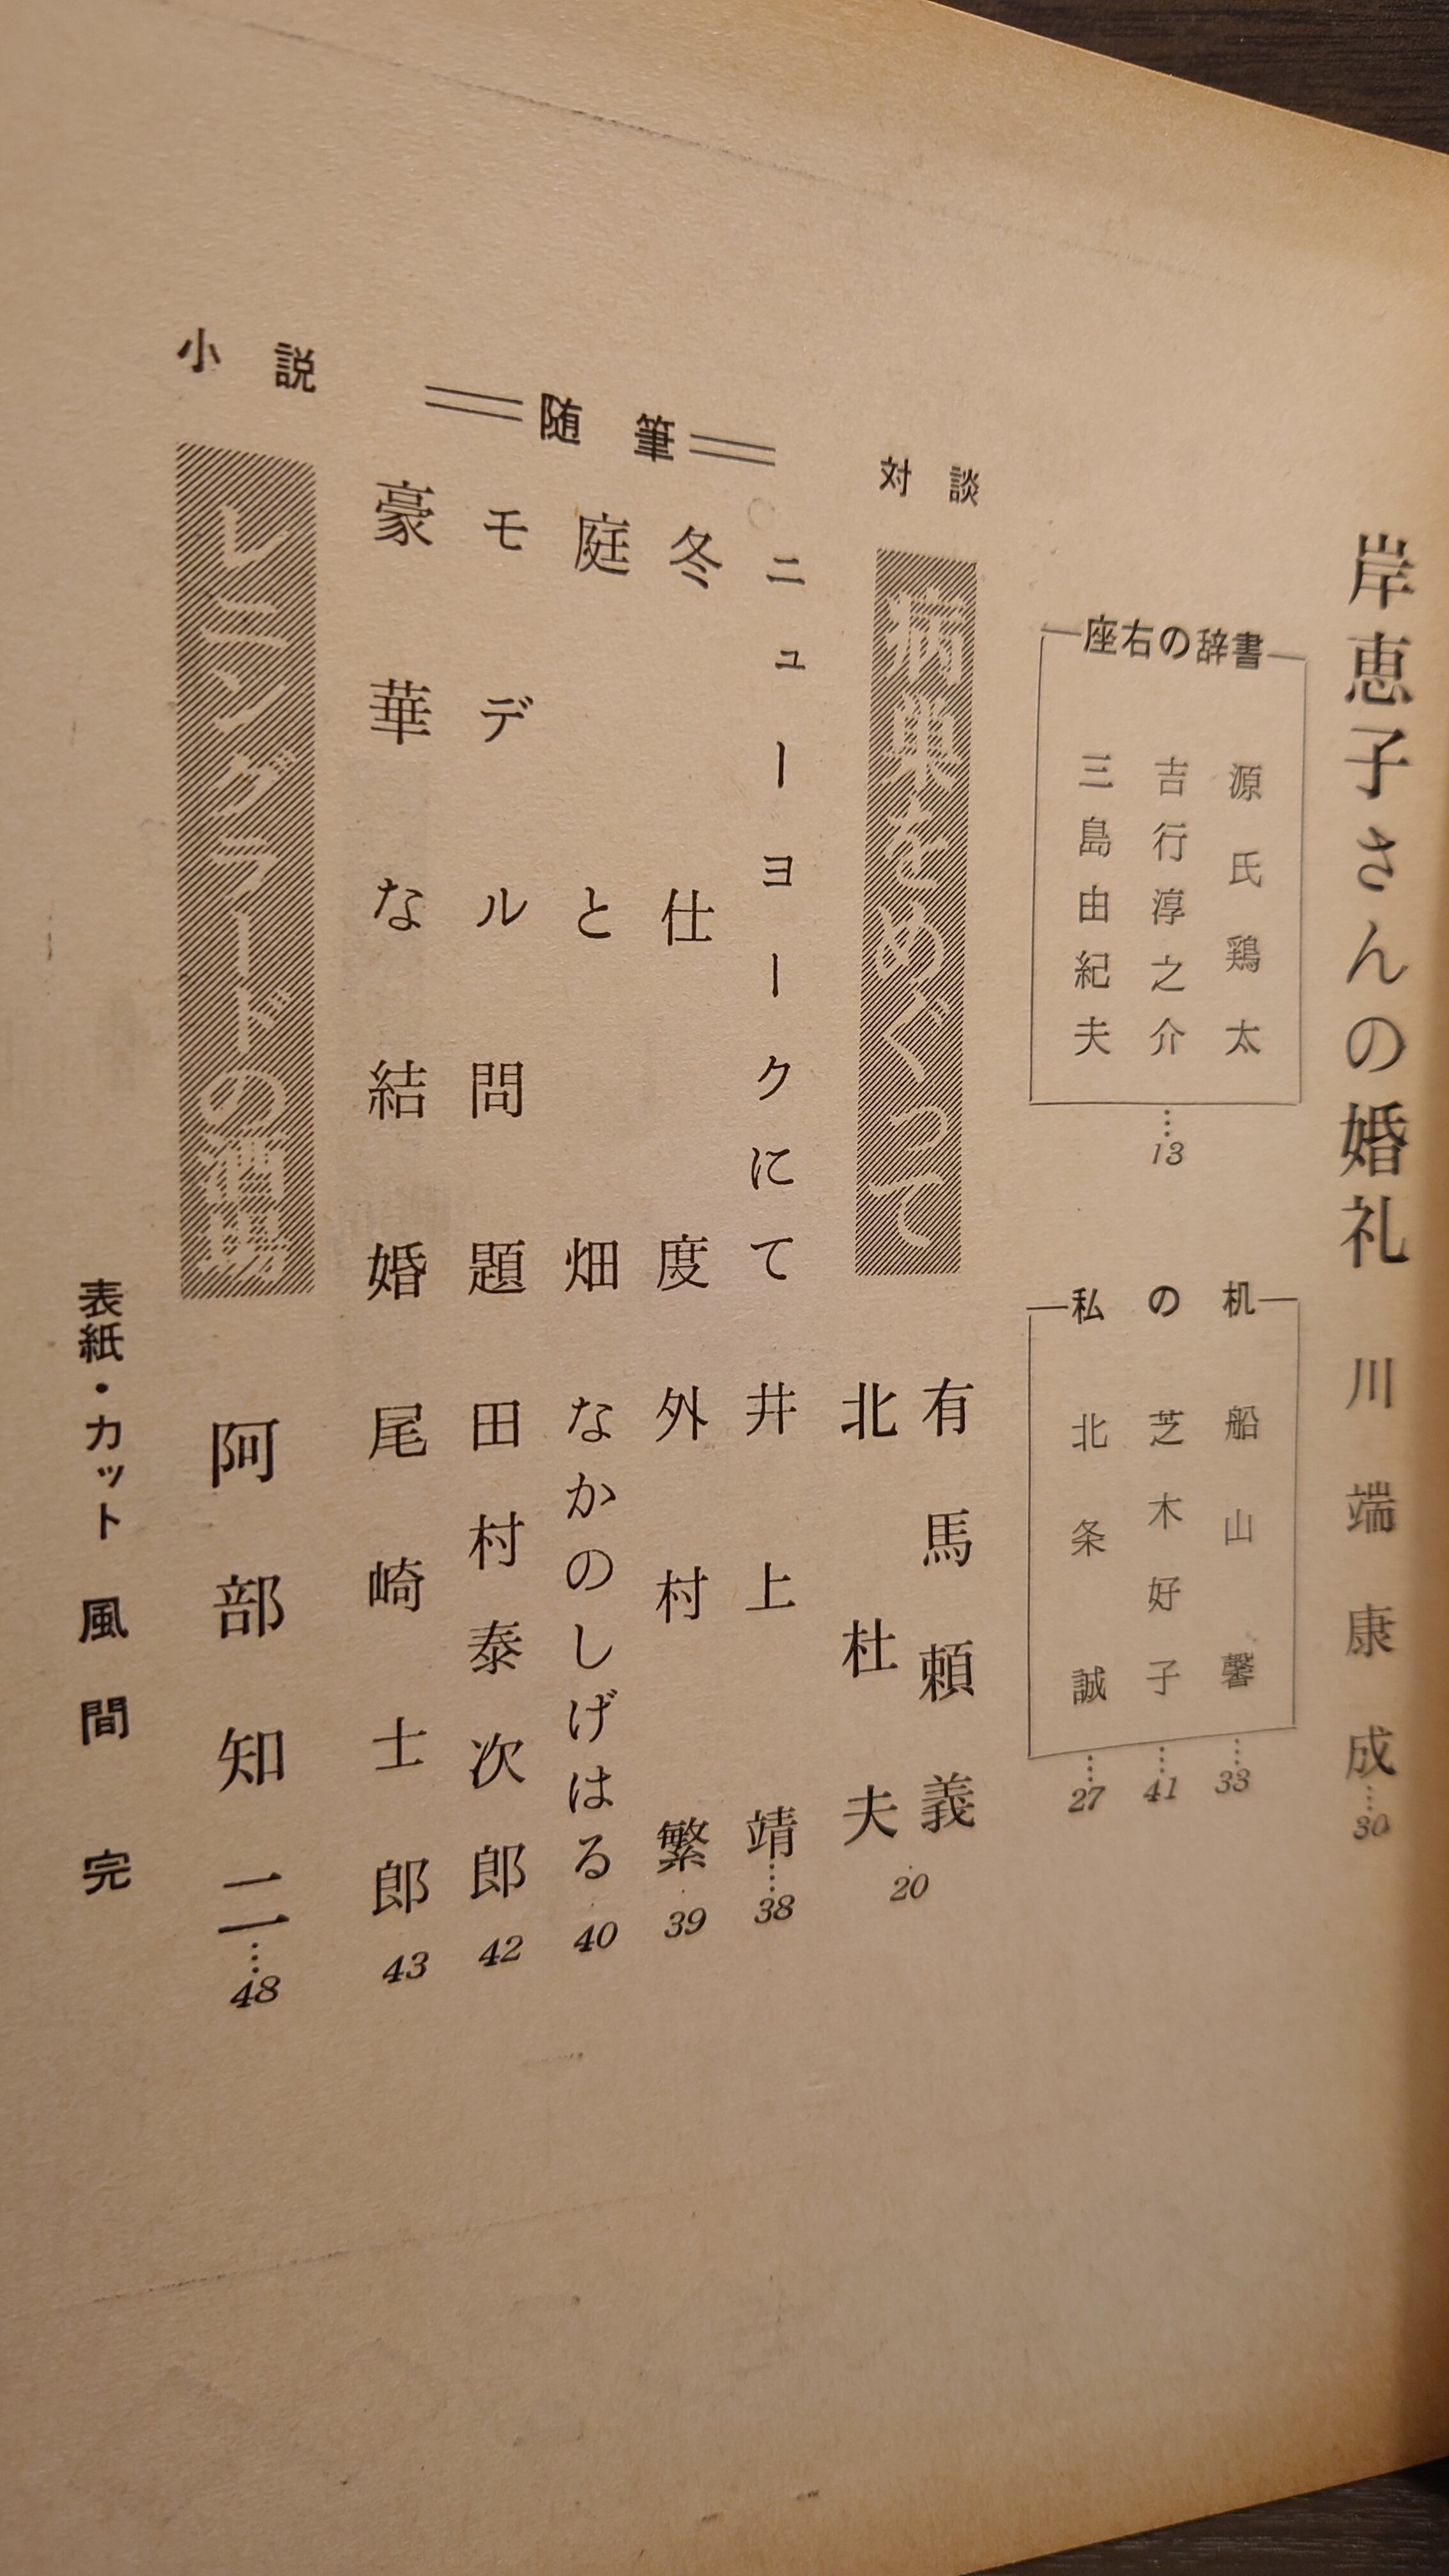 岸恵子さんの婚礼 川端康成…30
座右の辞書
源氏鶏太
吉行淳之介
三島由紀夫
…13
私の机
船山馨…33
芝木好子…41
北条誠…27
対談
病巣をめぐって
有馬頼義
北杜夫
20
随筆
ニューヨークにて 井上靖…38
冬仕度 外村繁 39
庭と畑 なかのしげはる 40
モデル問題 田村泰次郎 42
豪華な結婚 尾崎士郎 43
小説
レニングラードの酒場 阿部知二…48
表紙・カット 風間完